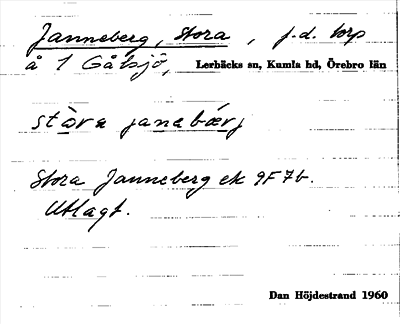 Janneberg, Stora, f.d. torp
å 1 Gålsjö, Lerbäcks sn, Kumla hd, Örebro län
stòra janabǽrj
Stora Janneberg ek 9F7b.
Utlagt.
Dan Höjdestrand 1960